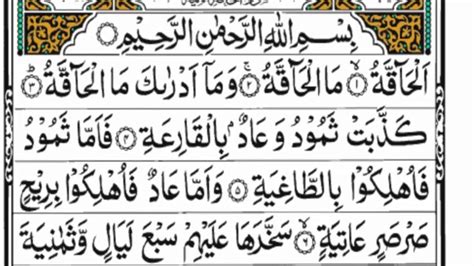 بِسْمِ اللّٰهِ الرَّحْمٰنِ الرَّحِيْمِ
اَلْحَآقَّةُ ۙ﴿۱﴾ مَا الْحَآقَّةُ ۚ﴿۲﴾ وَمَاۤ اَدْرٰىكَ مَا الْحَآقَّةُ ؕ﴿۳﴾
كَذَّبَتْ ثَمُوْدُ وَ عَادٌۢ بِالْقَارِعَةِ ﴿۴﴾ فَاَمَّا ثَمُوْدُ
فَاُهْلِكُوْا بِالطَّاغِيَةِ ﴿۵﴾ وَاَمَّا عَادٌ فَاُهْلِكُوْا بِرِيْحٍ
صَرْصَرٍ عَاتِيَةٍ ۙ﴿۶﴾ سَخَّرَهَا عَلَيْهِمْ سَبْعَ لَيَالٍ وَّثَمٰنِيَةَ